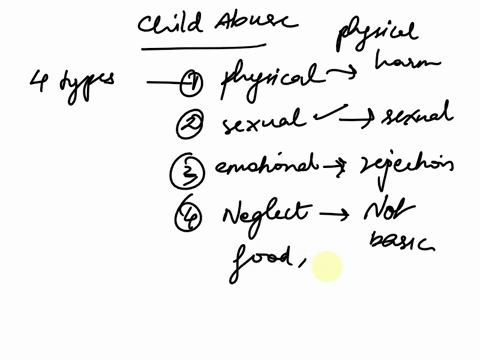 Child Abuse
4 types — ① physical → physical harm
② sexual ✓ → sexual
③ emotional → rejection
④ Neglect → Not basic
food,